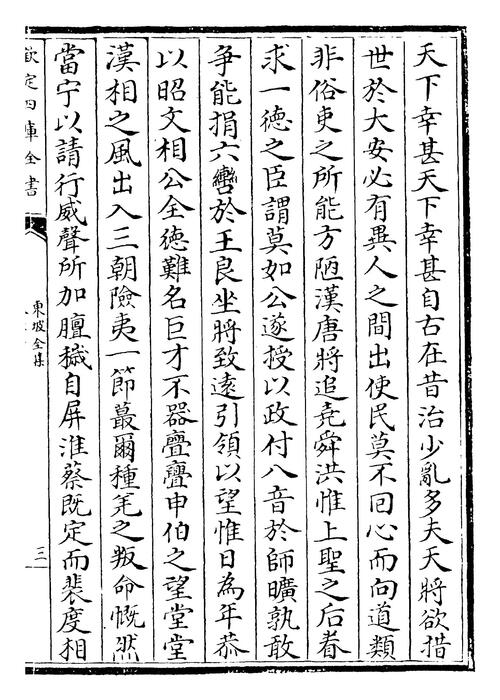 天下幸甚天下幸甚自古在昔治少亂多夫天將欲措
世於大安必有異人之間出使民莫不回心而向道類
非俗吏之所能方陋漢唐將追堯舜洪惟上聖之后眷
求一徳之臣謂莫如公遂授以政付八音於師曠孰敢
争能捐六轡於王良坐將致逺引領以望惟日為年恭
以昭文相公全徳難名巨才不器亹亹申伯之望堂堂
漢相之風出入三朝險夷一節蕞爾種羌之叛命慨然
當宁以請行威聲所加膻穢自屏淮蔡既定而裴度相
欽定四庫全書
東坡全集
三